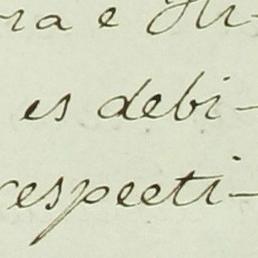 ora e Hi-
es debi-
respecti-